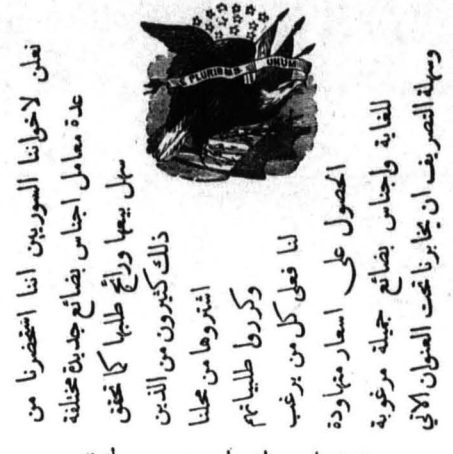 PLURIBUS UNUM
نعلن لاخواننا السوريين اننا استحضرنا من
عدة معامل اجناس بضائع جديدة مختلفة
سهل بيعها ورائج طلبها كما تحقق
ذلك كثيرون من الذين
اشتروها من محلنا
وكرروا طلبياتهم
لنا فعلى كل من يرغب
الحصول على اسعار متهاودة
للغاية واجناس بضائع جميلة مرغوبة
وسهلة التصريف ان يخابرنا تحت العنوان الآتي